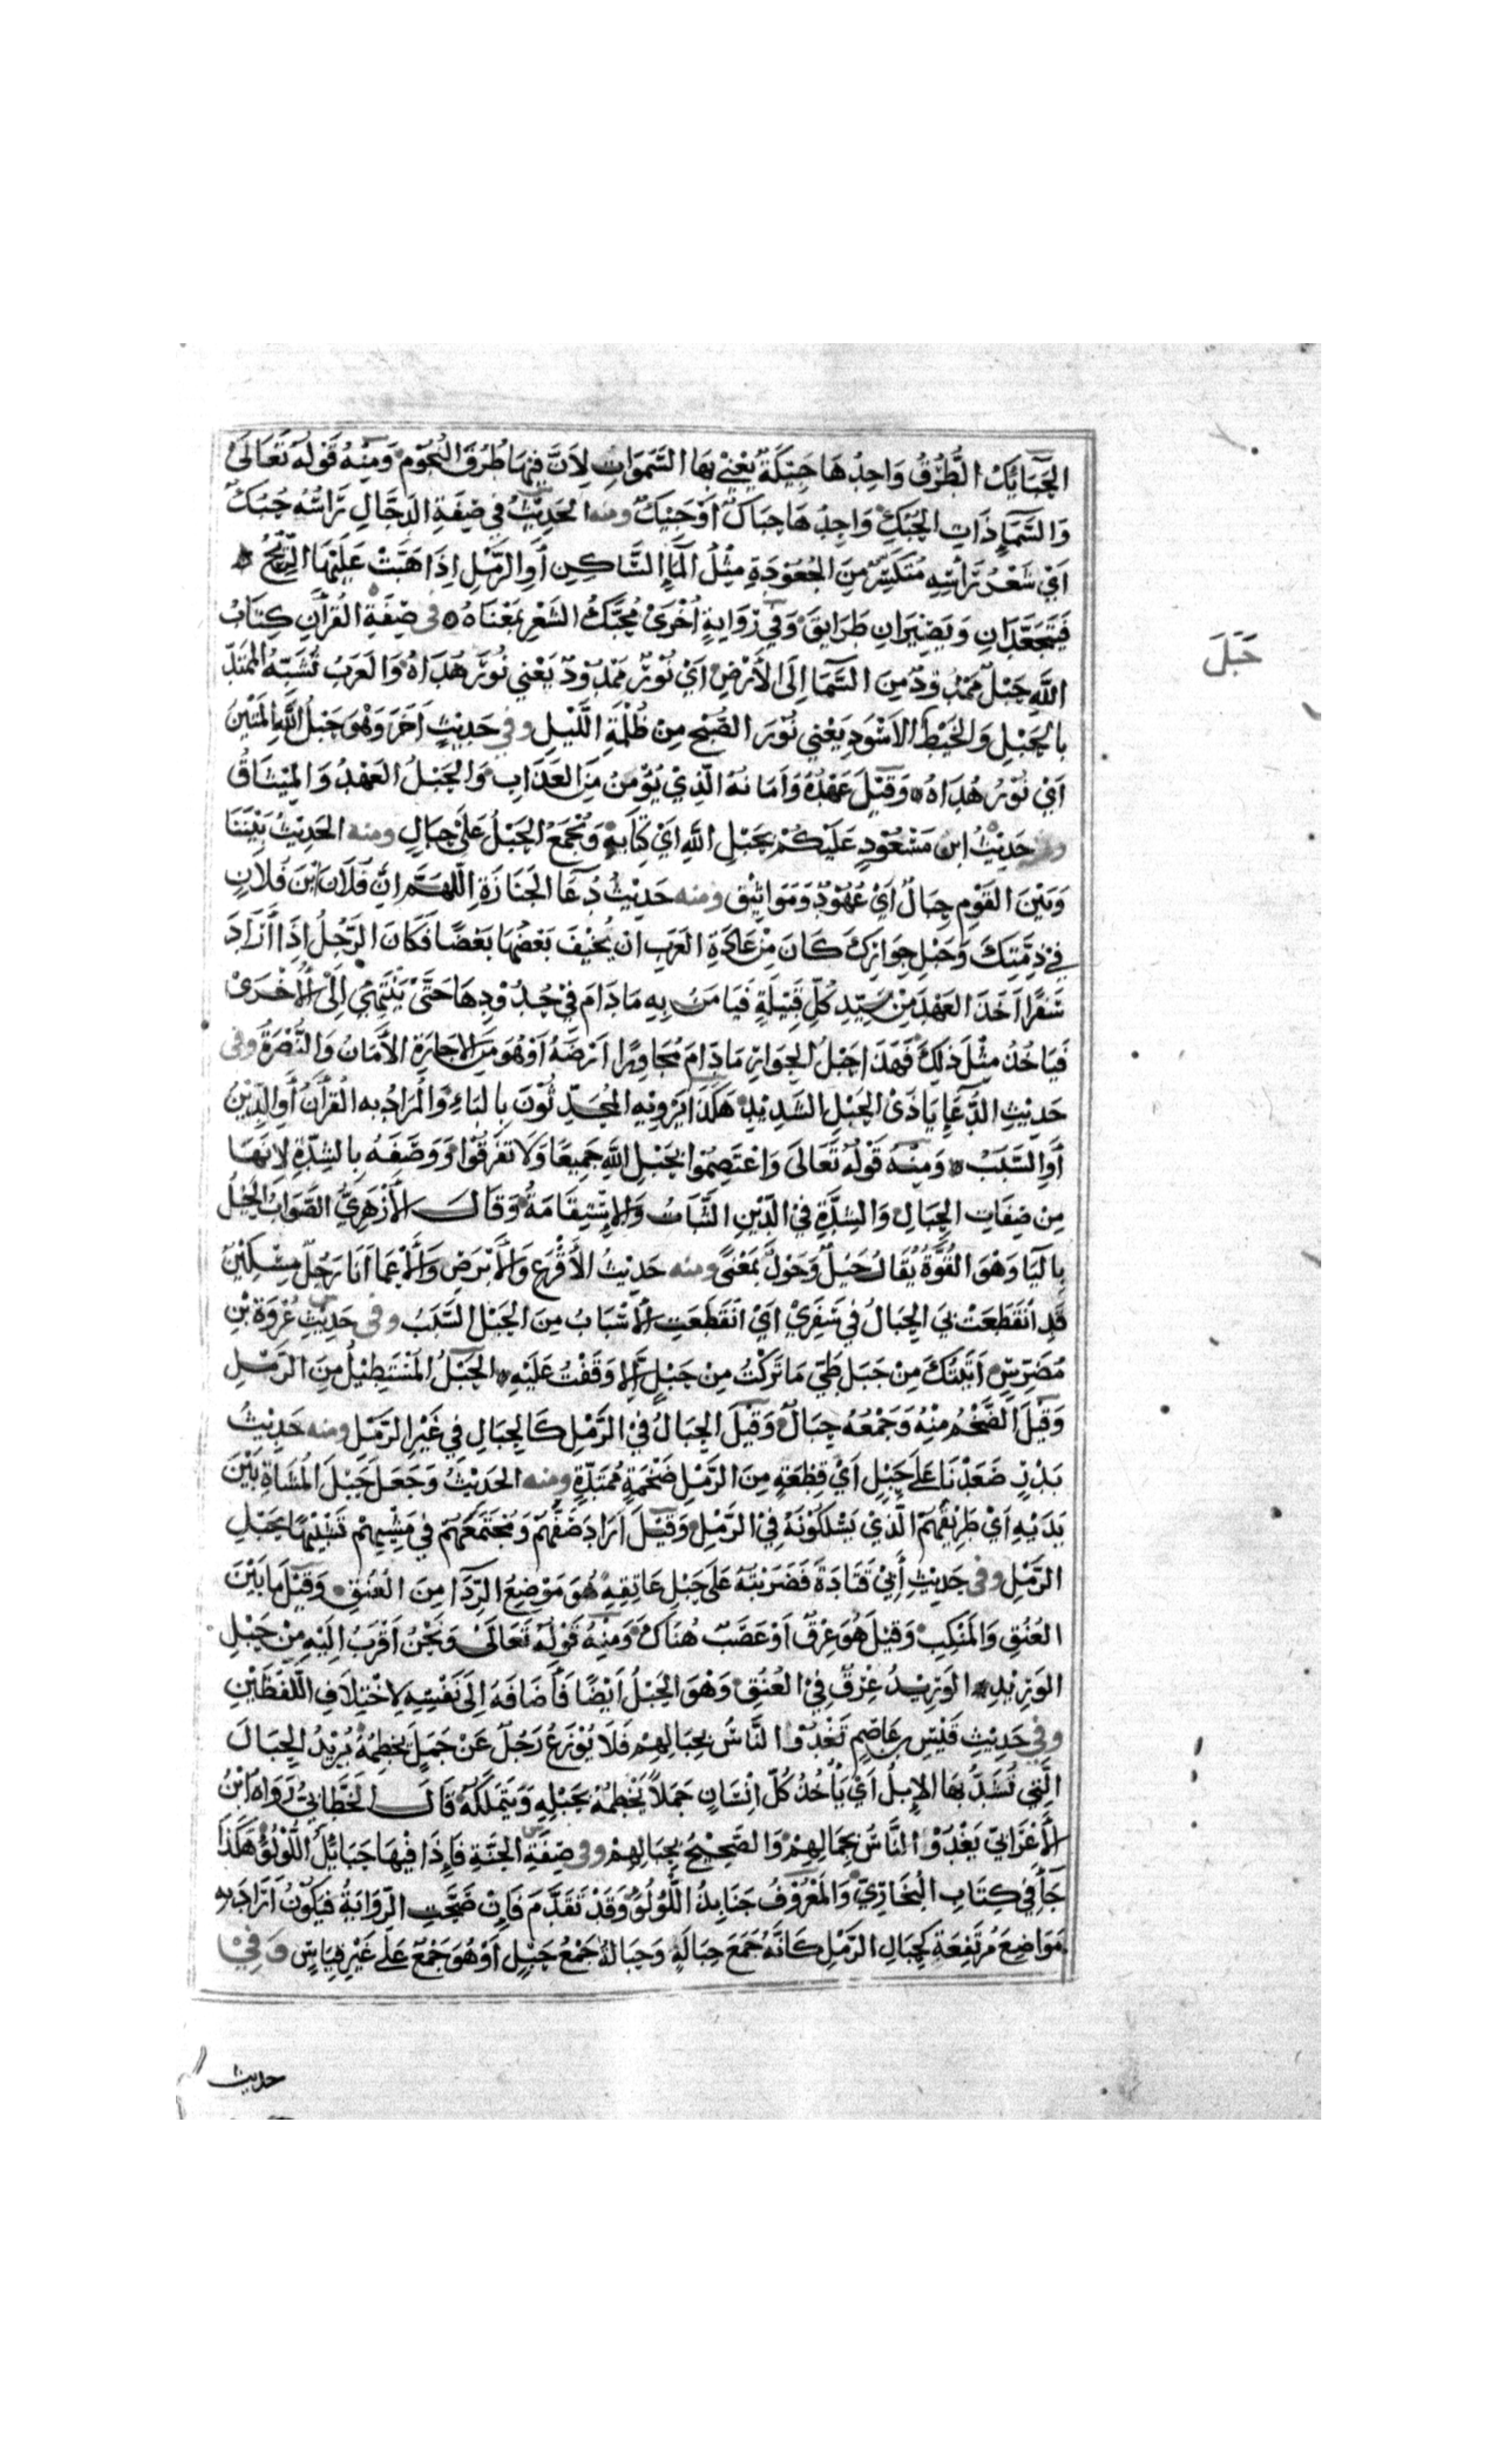 الحَبَائِكُ الطُّرُقُ وَاحِدُهَا حَبِيْكَةٌ يَعْنِي بِهَا السَّمَوَاتِ لِأَنَّ فِيْهَا طُرُقَ النُّجُوْمِ وَمِنْهُ قَوْلُهُ تَعَالَى
وَالسَّمَآءِ ذَاتِ الحُبُكِ وَاحِدُهَا حِبَاكٌ أَوْ حَبِيْكٌ ومنه الحَدِيْثُ فِي صِفَةِ الدَّجَّالِ رَأْسُهُ حُبُكٌ
اَيْ شَعْرُ رَأْسِهِ مُتَكَسِّرٌ مِنَ الجُعُوْدَةِ مِثْلُ المَآءِ السَّاكِنِ أَوِ الرَّمْلِ اِذَا هَبَّتْ عَلَيْهَا الرِّيْحُ
فَيَتَجَعَّدَانِ وَيَصِيْرَانِ طَرَايِقَ وَفِي رِوَايةٍ أُخْرَىْ مُحَبَّكُ الشَّعْرِ بِمَعْنَاهُ فى صِفَةِ القُرْاٰنِ كِتَابُ
حَبَلَ
اللَّهِ حَبْلٌ مَمْدُوْدٌ مِنَ السَّمَآ اِلَى الأَرْضِ اَيْ نُوْرٌ مَمْدُوْدٌ يَعْنِي نُوْرَ هُدَاهُ وَالعَرَبُ تُشَبِّهُ المُمْتَدَّ
بِالحَبْلِ وَالخَيْطِ الاَسْوَدِ يَعْنِي نُوْرَ الصُّبْحِ مِنْ ظُلْمَةِ اللَّيْلِ وفي حَدِيْثٍ اٰخَرَ وَهْوَ حَبْلُ اللَّهِ المَتِيْنُ
اَيْ نُوْرُ هُدَاهُ وَقِيْلَ عَهْدُهُ وَاَمَانُهُ الَّذِيْ يُؤْمِنُ مِنَ العَذَابِ وَالحَبْلُ العَهْدُ وَالمِيْثَاقُ
ومنه حَدِيْثُ ابْنِ مَسْعُوْدٍ عَلَيْكُمْ بِحَبْلِ اللَّهِ اَيْ كِتَابِهِ وَيُجْمَعُ الحَبْلُ عَلَى حِبَالٍ ومنه الحَدِيْثُ بَيْنَنَا
وَبَيْنَ القَوْمِ حِبَالٌ اَيْ عُهُوْدٌ وَمَوَاثِيْقُ ومنه حَدِيْثُ دُعَآ الجَنَازَةِ اللَّهُمَّ اِنَّ فُلَانَ ابْنَ فُلَانٍ
فِي ذِمَّتِكَ وَحَبْلِ جِوَارِكَ كَانَ مِنْ عَادَةِ العَرَبِ ان يُخِيْفَ بَعْضُهَا بَعْضًا فَكَانَ الرَّجُلُ اِذَا أَرَادَ
سَفَرًا اَخَذَ العَهْدَ مِنْ سَيِّدِ كُلِّ قَبِيْلَةٍ فَيَامَنُ بِهِ مَا دَامَ فِي حُدُوْدِهَا حَتَّىْ يَنْتَهِيَ اِلَى الأُخْرَىْ
فَيَاخُذُ مِثْلَ ذٰلِكَ فَهَذَا حَبْلُ الجِوَارِ مَادَامَ مُجَاوِرًا اَرْضَهُ اَوْ هُوَ مِنَ الاِجَارَةِ الأَمَانُ وَالنُّصْرَةُ وفى
حَدِيْثِ الدُّعَآءِ يَا ذَىْ الحَبْلِ الشَّدِيْدِ هَكَذَا يَرْوِيْهِ المُحَدِّثُوْنَ بِالبَاءِ وَالْمُرَادُ به القُرْاٰنُ أَوِ الدِّيْنُ
أَوِ السَّبَبُ وَمِنْهُ قَوْلُهُ تَعَالَى وَاعْتَصِمُوْا بِحَبْلِ اللَّهِ جَمِيْعًا وَلَا تَفَرَّقُوْا وَوَصَفَهُ بِالشِّدَّةِ لِاَنَّهَا
مِنْ صِفَاتِ الحِبَالِ وَالشِّدَّةِ فِي الدِّيْنِ الثَّبَاتُ وَالاِسْتِقَامَةُ وَقَالَ الأَزْهَرِيُّ الصَّوَابُ الحَيْلُ
بِاليَآ وَهُوَ القُوَّةُ يُقَالُ حَيْلٌ وَحَوْلٌ بِمَعْنًى ومنه حَدِيْثُ الأَقْرَعِ وَالأَبْرَصِ وَالأَعْمَا اَنَا رَجُلٌ مِسْكِيْنٌ
قَدِ انْقَطَعَتْ بِيَ الحِبَالُ فِي سَفَرِيْ اَيْ انْقَطَعَتِ الأَسْبَابُ مِنَ الحَبْلِ السَّبَبُ وفى حَدِيْثِ عُرْوَةَ بْنِ
مُضَرِّسٍ اَتَيْتُكَ مِنْ جَبَلِ طَيٍّ مَا تَرَكْتُ مِنْ حَبْلٍ اِلَّا وَقَفْتُ عَلَيْهِ الحَبْلُ المُسْتَطِيْلُ مِنَ الرَّمْلِ
وَقِيْلَ الضَّخْمُ مِنْهُ وَجَمْعُهُ حِبَالٌ وَقِيْلَ الحِبَالُ فِي الرَّمْلِ كَالجِبَالِ فِي غَيْرِ الرَّمْلِ ومنه حَدِيْثُ
بَدْرٍ صَعَدْنَا عَلَى حَبْلٍ اَيْ قِطْعَةٍ مِنَ الرَّمْلِ ضَخْمَةٍ مُمْتَدَّةٍ ومنه الحَدِيْثُ وَجَعَلَ حَبْلَ المُشَاةِ بَيْنَ
يَدَيْهِ اَيْ طَرِيْقَهُمُ الَّذِيْ يَسْلُكُوْنَهُ فِي الرَّمْلِ وَقِيْلَ اَرَادَ صَفَّهُمْ وَمُجْتَمَعَهُمْ فِي مَشْيِهِمْ تَشْبِيْهًا بِحَبْلِ
الرَّمْلِ وفى حَدِيْثِ أَبِيْ قَتَادَةَ فَضَرَبْتُهُ عَلَى حَبْلِ عَاتِقِهِ هُوَ مَوْضِعُ الرِّدَآ مِنَ العُنُقِ وَقِيْلَ مَا بَيْنَ
العُنُقِ وَالمَنْكِبِ وَقِيْلَ هُوَ عِرْقٌ اَوْ عَصَبٌ هُنَاكَ وَمِنْهُ قَوْلُهُ تَعَالَى وَنَحْنُ اَقْرَبُ اِلَيْهِ مِنْ حَبْلِ
الوَرِيْدِ الوَرِيْدُ عِرْقٌ فِي العُنُقِ وَهْوَ الحَبْلُ اَيْضًا فَأَضَافَهُ اِلَى نَفْسِهِ لِاخْتِلَافِ اللَّفْظَيْنِ
وفي حَدِيْثِ قَيْسِ بن عَاصِمٍ تَغْدُوْا النَّاسُ بِحِبَالِهِمْ فَلَا يُوْزَعُ رَجُلٌ عَنْ جَمَلٍ يَخْطِمُهُ يُرِيْدُ الحِبَالَ
الَّتِي تُشَدُّ بِهَا الاِبِلُ اَيْ يَأْخُذُ كُلُّ اِنْسَانٍ جَمَلاً يَخْطِمُهُ بِحَبْلِهِ وَيَتَمَلَّكُهُ قَالَ الخَطَّابِيُّ رَوَاهُ ابْنُ
الأَعْرَابِيِّ يَغْدُوْ النَّاسُ بِجِمَالِهِمْ وَالصَّحِيْحُ بِحِبَالِهِمْ وفى صِفَةِ الجَنَّةِ فَاِذَا فِيْهَا حَبَائِلُ اللُّوْلُؤِ هَكَذَا
جَآءَ فِي كِتَابِ البُخَارِيِّ وَالمَعْرُوْفُ جَنَابِذُ اللُّوْلُؤِ وَقَدْ تَقَدَّمَ فَاِنْ صَحَّتِ الرِّوَايَةُ فَيَكُوْنُ اَرَادَ به
مَوَاضِعَ مُرْتَفِعَةٍ كَحِبَالِ الرَّمْلِ كَاَنَّهُ جَمَعَ حِبَالَةٍ وَحِبَالَةٌ جَمْعُ حَبْلٍ اَوْ هُوَ جَمْعٌ عَلَى غَيْرِ قِيَاسٍ وَفِيْ
حديث